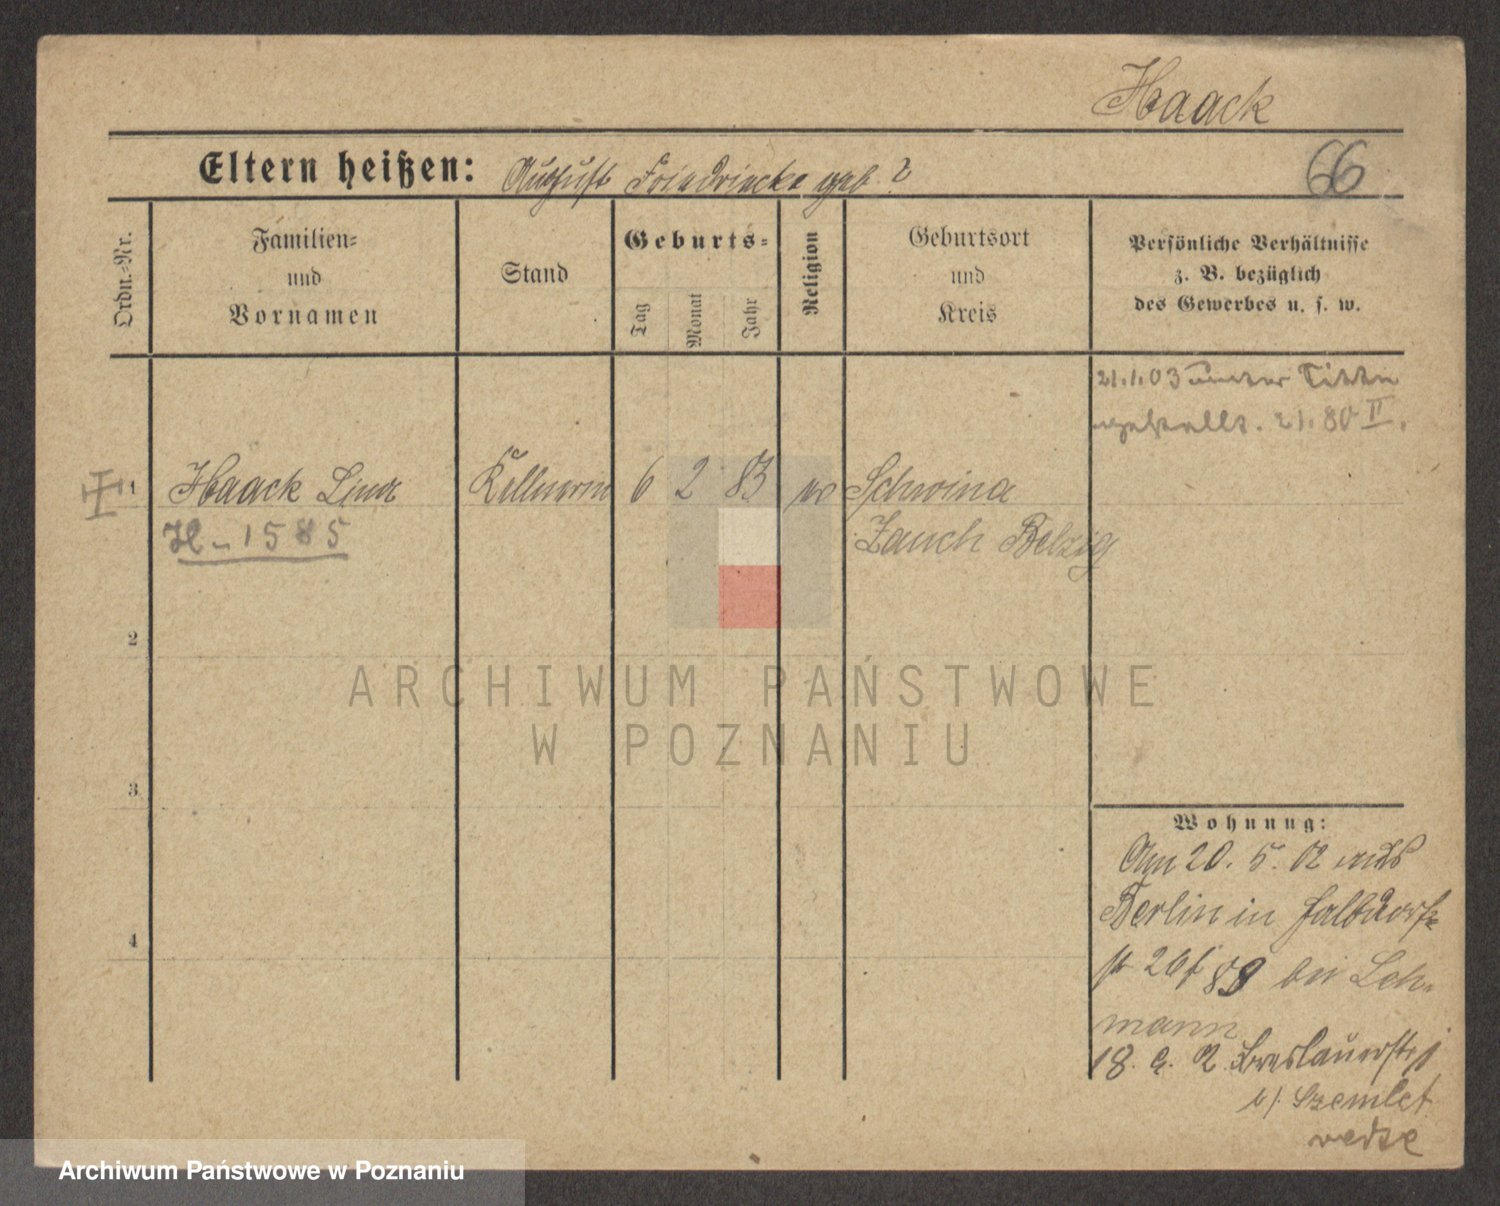 Haack
Eltern heißen: August Friedricke geb ?
66
Ordn.-Nr.
Familien-
und
Vornamen
Stand
Geburts-
Tag
Monat
Jahr
Religion
Geburtsort
und
Kreis
Persönliche Verhältnisse
z. B. bezüglich
des Gewerbes u. s. w.
21.1.03 unter Sitten
gestellt. 21.80 II.
1 Haack Lina Kellnerin 6 2 83 ev Schwina
H-1585
Zauch Belzig
2
3
4
Wohnung:
Am 20. 5. 02 aus
Berlin in
26 f 89 bei Leh-
mann
18. 2 Breslauerstr
b/.
ARCHIWUM PAŃSTWOWE
W POZNANIU
Archiwum Państwowe w Poznaniu